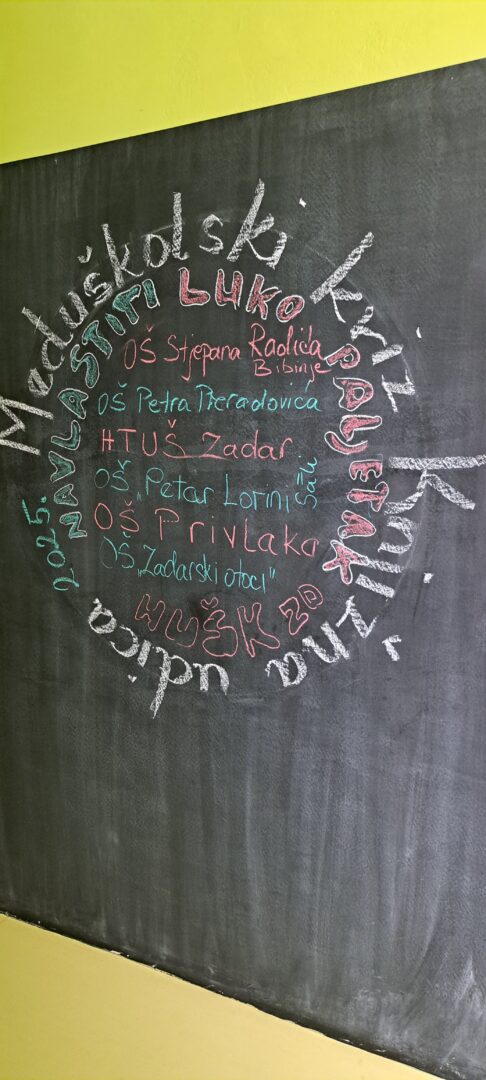 Međuškolski kviz
Književna udica
NAVLASTITI LUKO PALJETAK
2025.
OŠ Stjepana Radića
Bibinje
OŠ Petra Preradovića
HTUŠ Zadar
OŠ „Petar Lorini" Sali
OŠ Privlaka
OŠ „Zadarski otoci"
HUŠK ZD